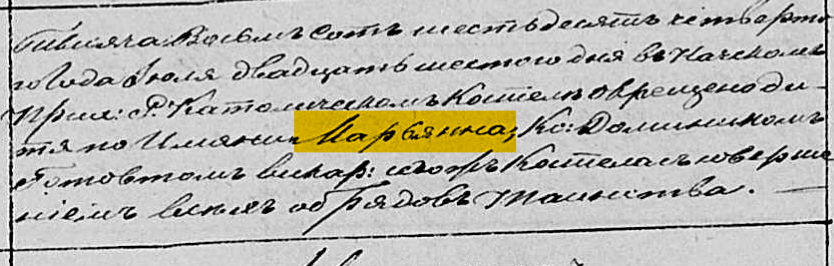 Тысяча Восемъ сотъ шестьдесятъ четверто
го Года Іюля двадцать шестого дня въ Начскомъ
Прих: Р. Католическомъ Костелѣ окрещено ди-
тя по Имяни Марьянна, Кс: Доминикомъ
викар: тогожъ Костела съ соверше
ніемъ всѣхъ обрядовъ таинства.